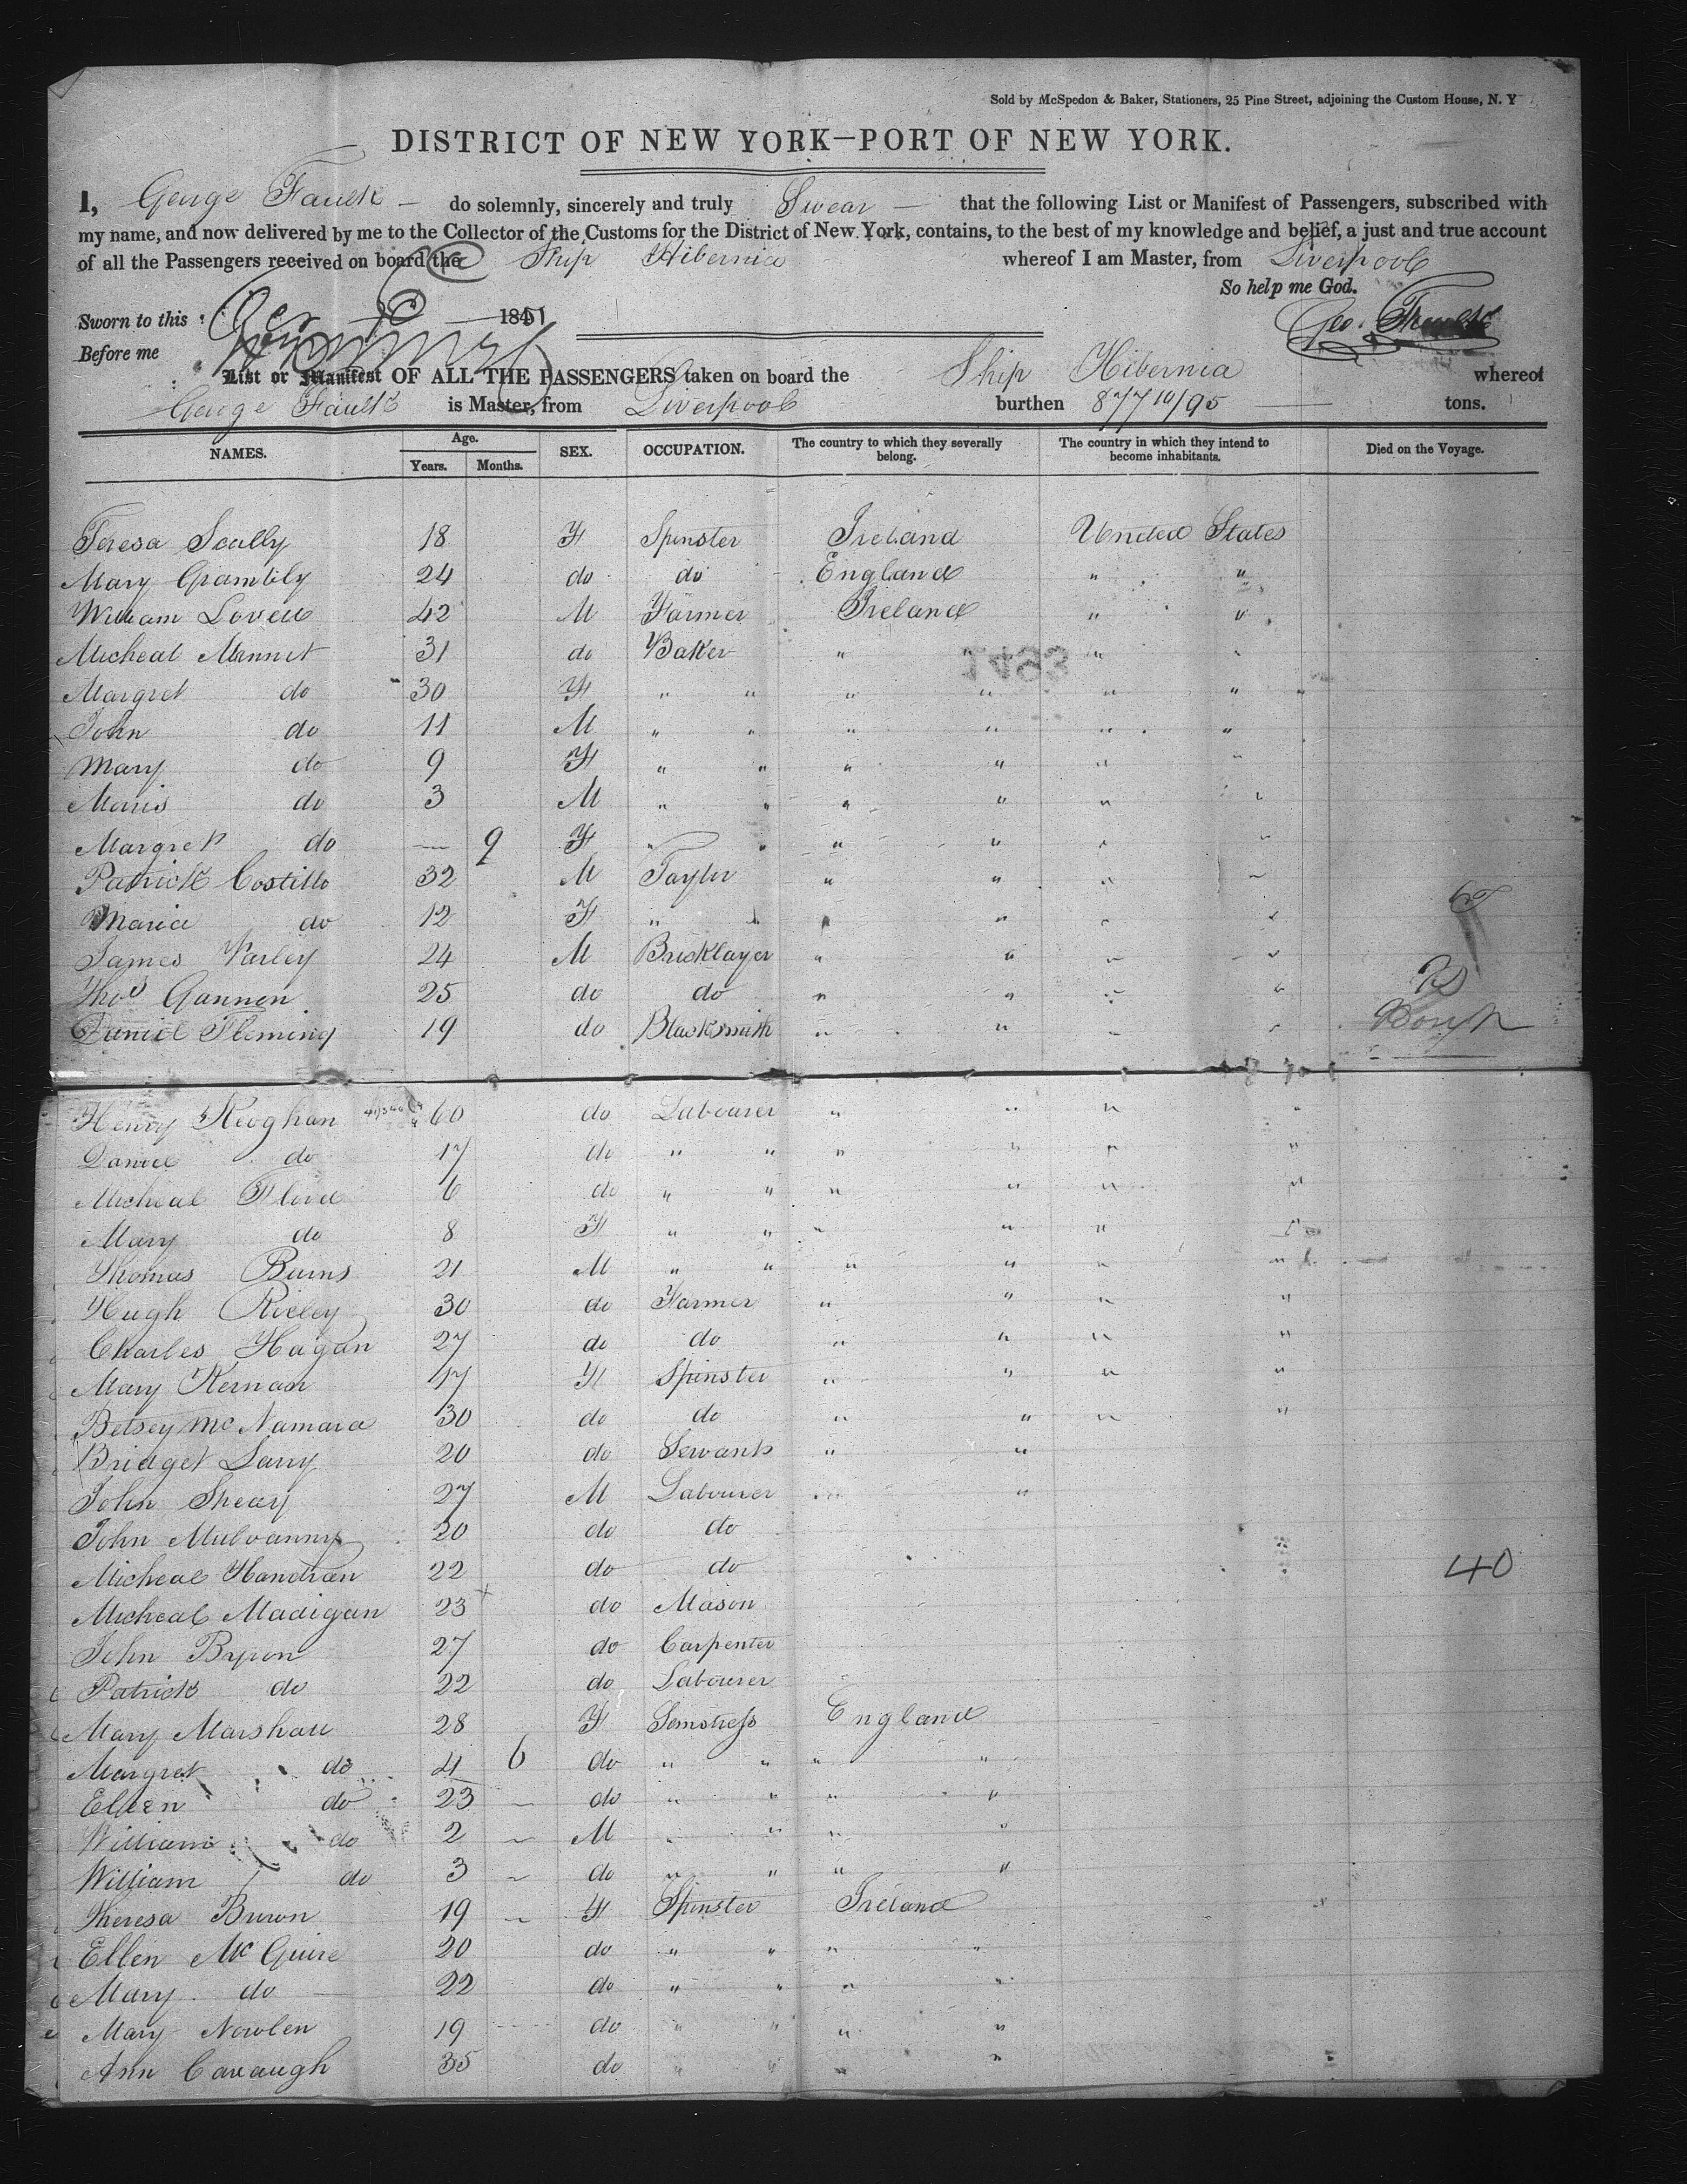 Sold by McSpedon & Baker, Stationers, 25 Pine Street, adjoining the Custom House, N. Y
DISTRICT OF NEW YORK—PORT OF NEW YORK.
I, George Faulk — do solemnly, sincerely and truly Swear — that the following List or Manifest of Passengers, subscribed with
my name, and now delivered by me to the Collector of the Customs for the District of New York, contains, to the best of my knowledge and belief, a just and true account
of all the Passengers received on board the Ship Hibernia whereof I am Master, from Liverpool
So help me God.
Sworn to this 1851 Geo.
Before me
List or Manifest OF ALL THE PASSENGERS taken on board the Ship Hibernia whereof
George Faulk is Master, from Liverpool burthen 877 10/95 — tons.
NAMES. Age. Years. Months. SEX. OCCUPATION. The country to which they severally belong. The country in which they intend to become inhabitants. Died on the Voyage.
Teresa Scully 18 F Spinster Ireland United States
Mary 24 do do England " "
William Lovell 42 M Farmer Ireland " "
Micheal 31 do Baker " " " "
1493
Margret do 30 F " " " " " "
John do 11 M " " " " " "
Mary do 9 F " " " " " "
Maris do 3 M " " " " " "
Margret do — 9 F " " " " " "
Patrick Costillo 32 M Taylor " " " "
Maria do 12 F " " " " " "
James Varley 24 M Bricklayer " " " "
Thos Gannon 25 do do " " " "
Daniel Fleming 19 do Blacksmith " " " "
Henry Keoghan 60 do Labourer " " " "
Daniel do 17 do " " " " " "
Micheal 6 do " " " " " "
Mary do 8 F " " " " " "
Thomas Burns 21 M " " " " " "
Hugh Rieley 30 do Farmer " " " "
Charles Hagan 27 do do " " " "
Mary Kernan 17 F Spinster " " " "
Betsey McNamara 30 do do " " " "
Bridget 20 do Servant " "
John Sheay 27 M Labourer " "
John Mulvanny 20 do do
Micheal Handran 22 do do 40
Micheal Madigan 23 do Mason
John Byron 27 do Carpenter
Patrick do 22 do Labourer
Mary Marshall 28 F Semstress England
Margret do 4 6 do " " " "
Ellen do 23 — do " " " "
William do 2 — M " " " "
William do 3 — do " " " "
Theresa 19 — F Spinster Ireland
Ellen McGuire 20 do " " " "
Mary do 22 do " " " "
Mary Nowlen 19 do " " " "
Ann Cavaugh 35 do " " " "